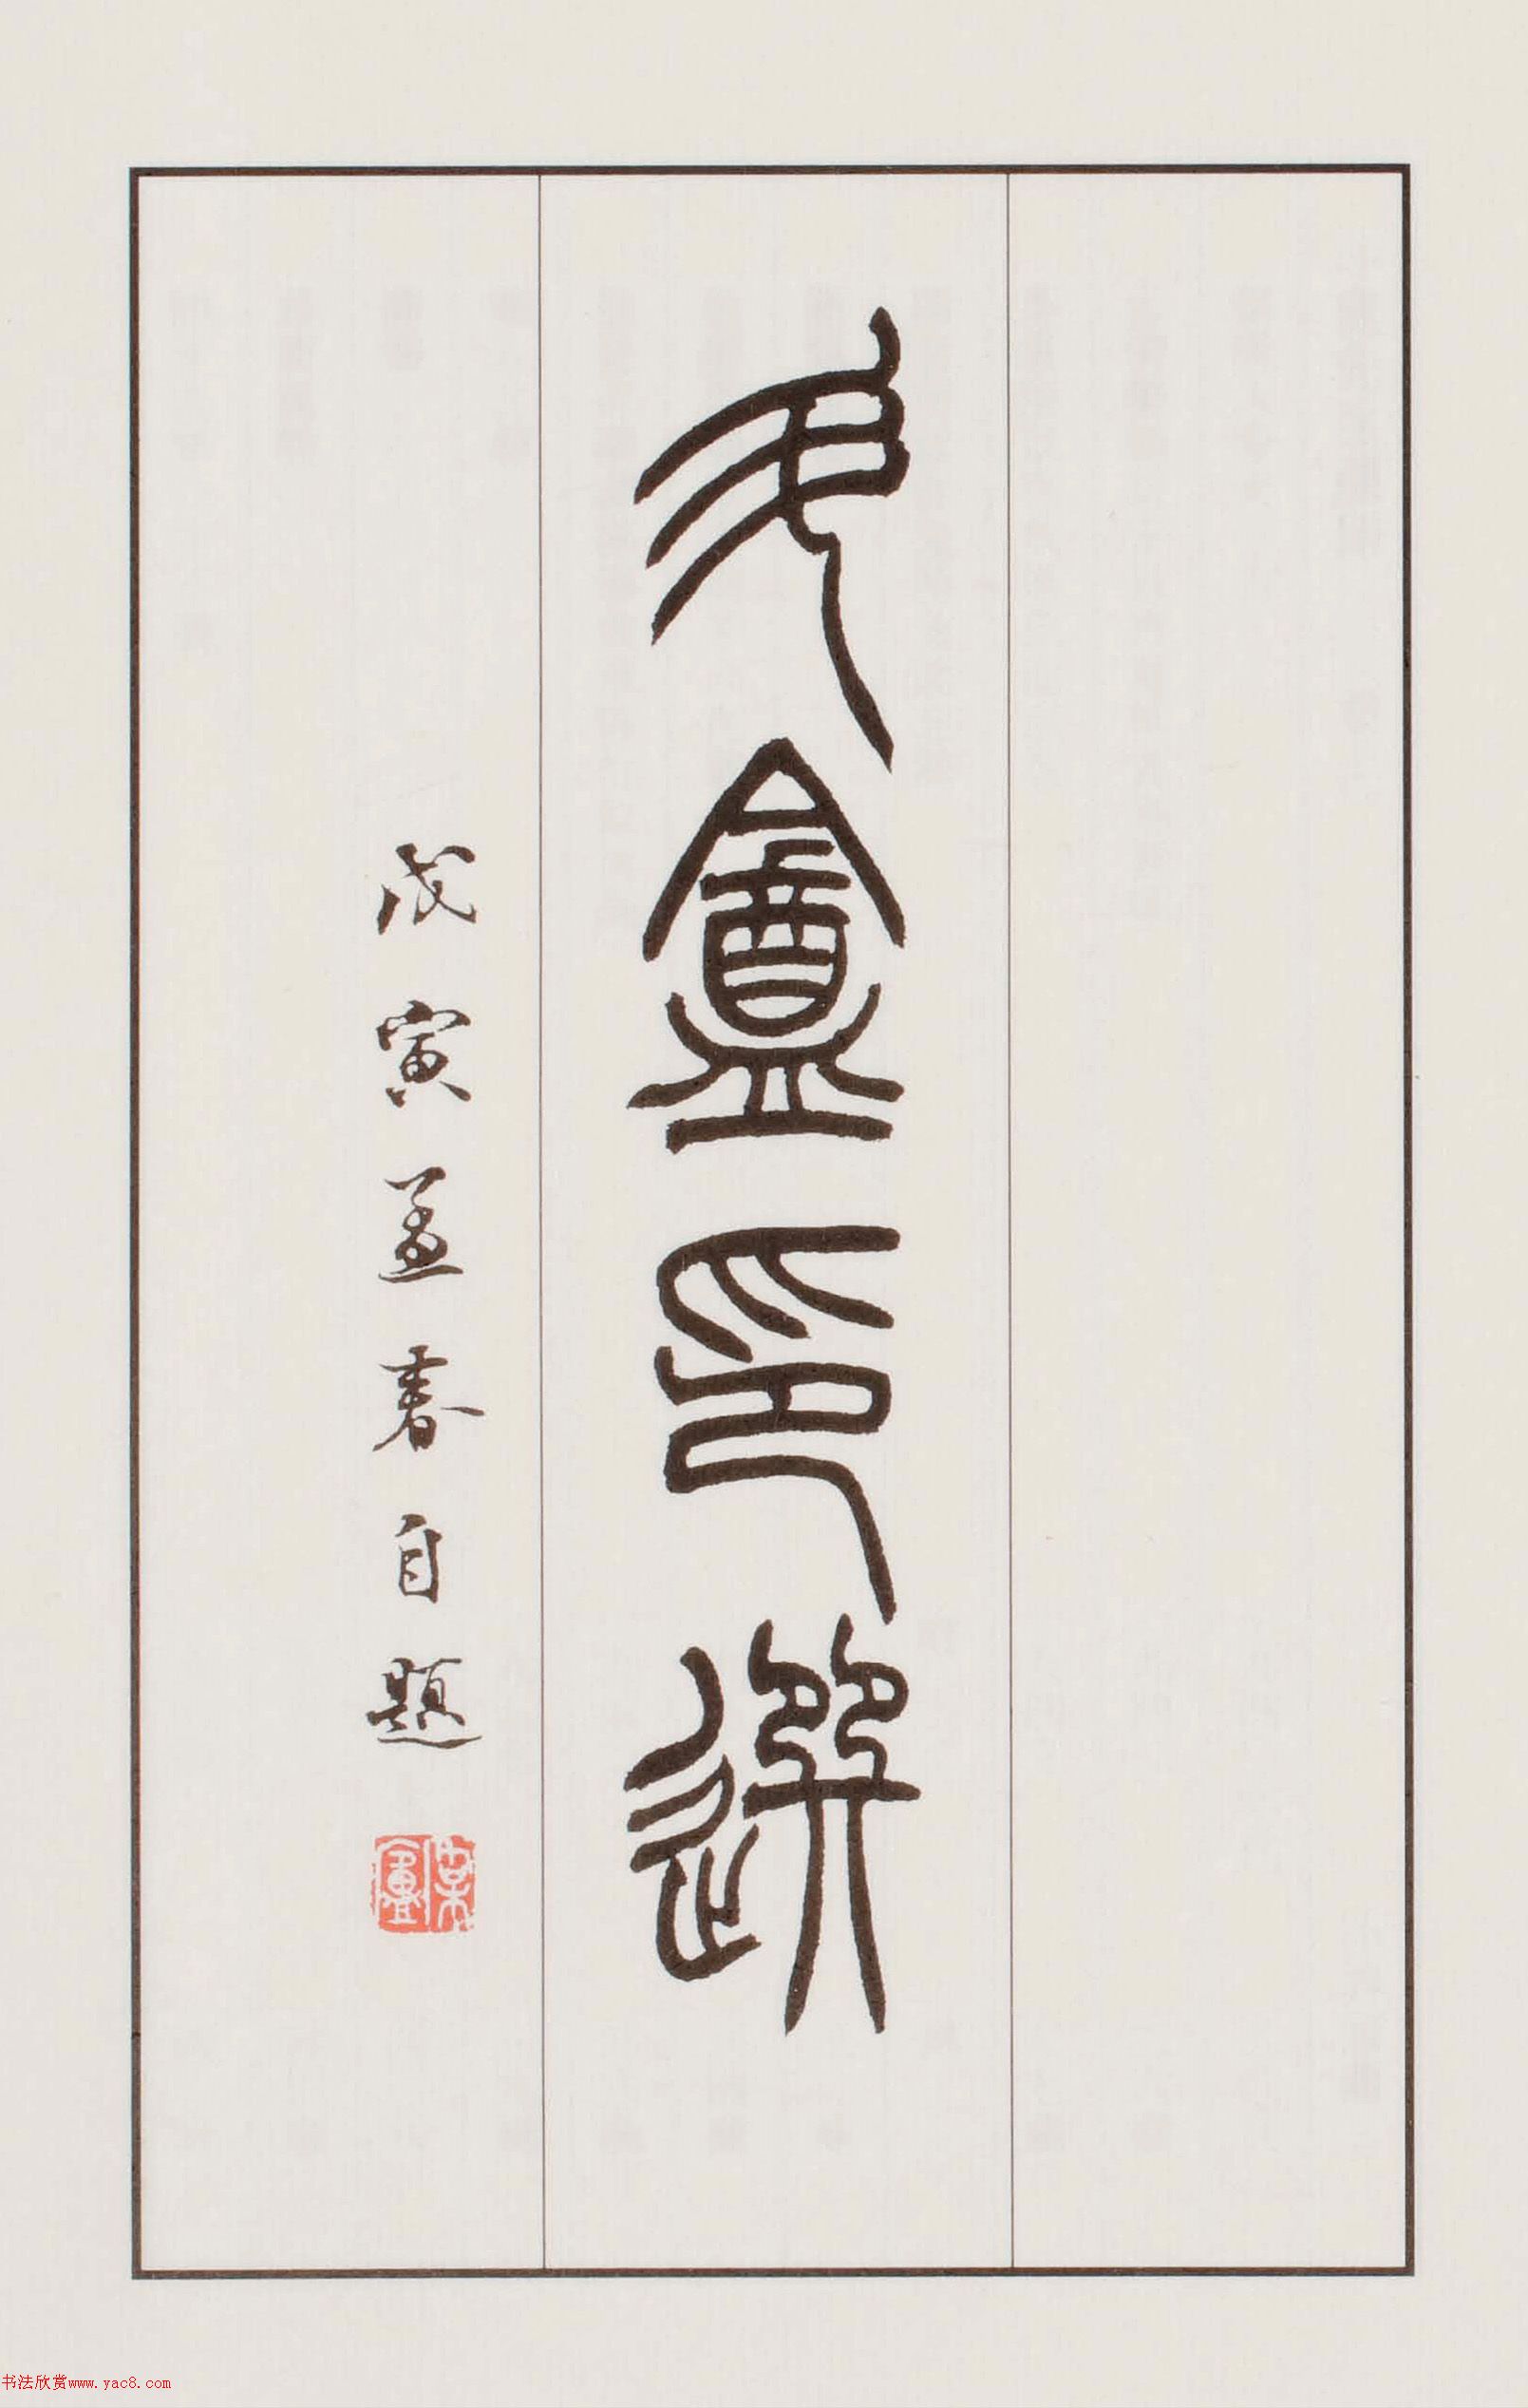 盦印選
戊寅孟春自題
书法欣赏www.yac8.com